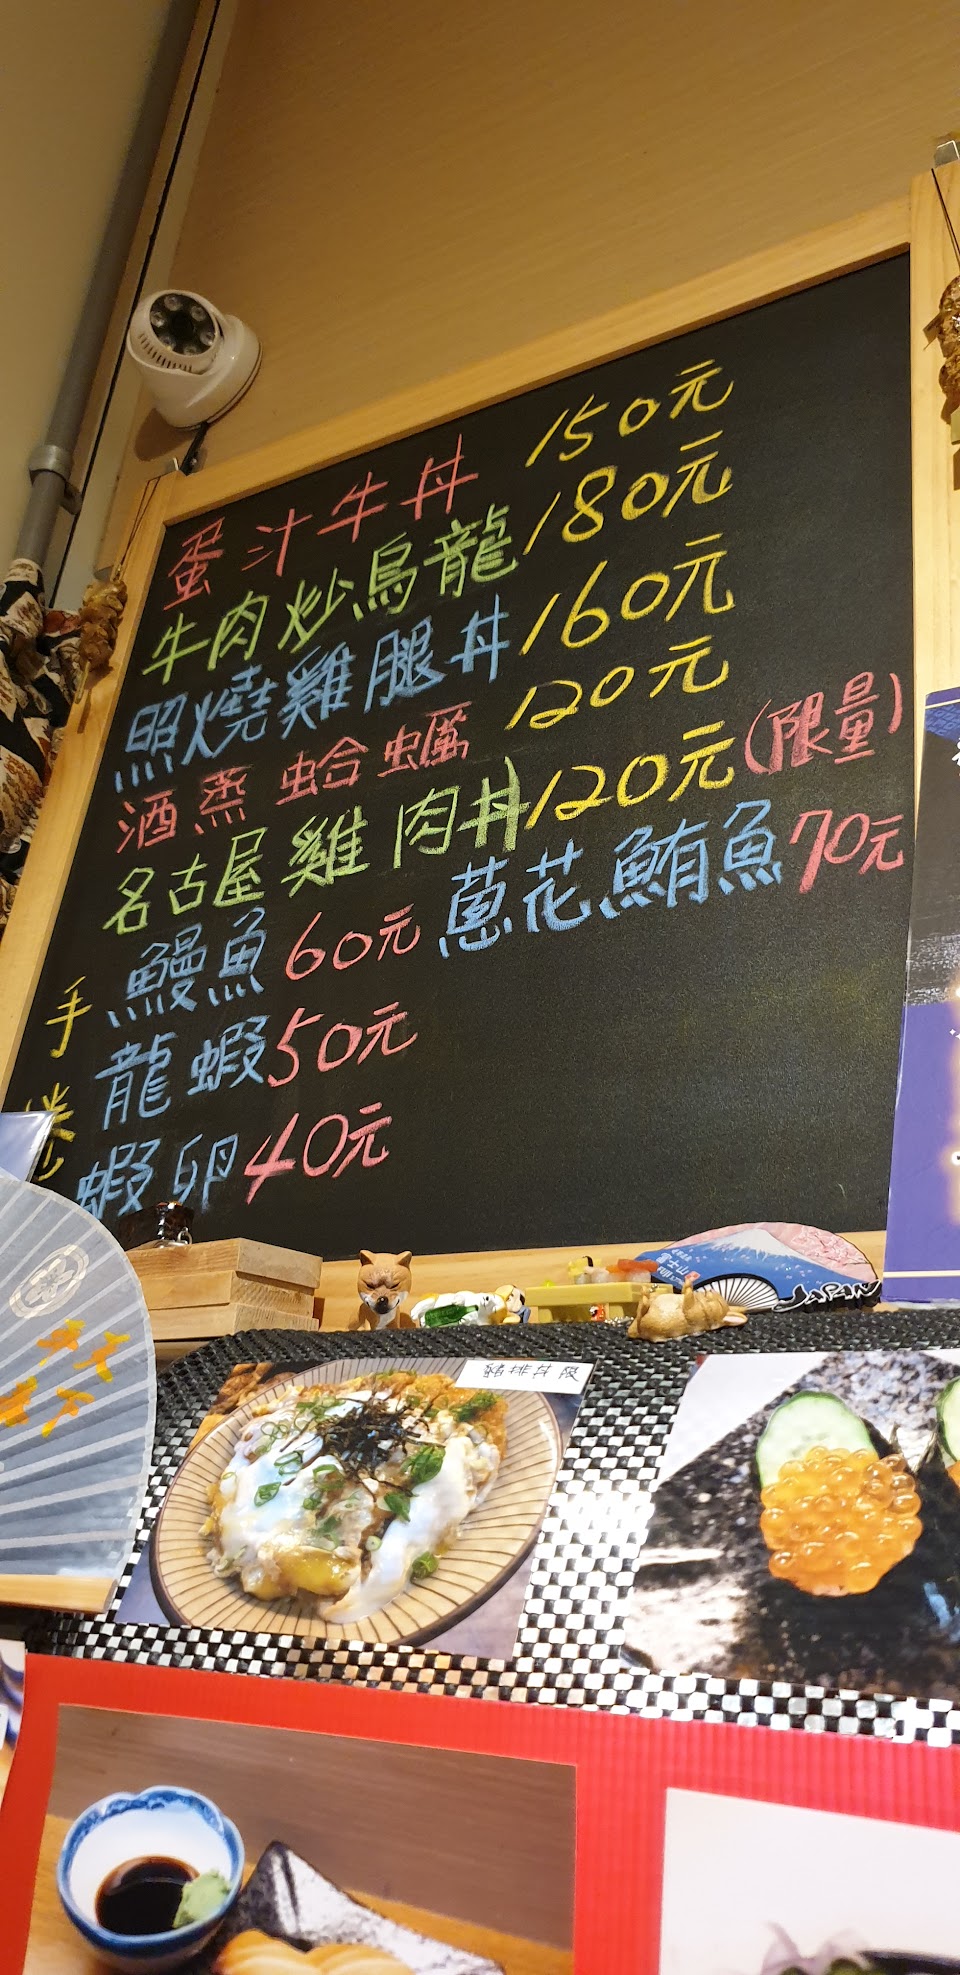 蛋汁牛丼 150元
牛肉炒烏龍 180元
照燒雞腿丼 160元
酒蒸蛤蠣 120元
名古屋雞肉丼 120元(限量)
手卷
鰻魚60元 蔥花鮪魚70元
龍蝦50元
蝦卵40元
富士山
JAPAN
豬排丼飯
天下